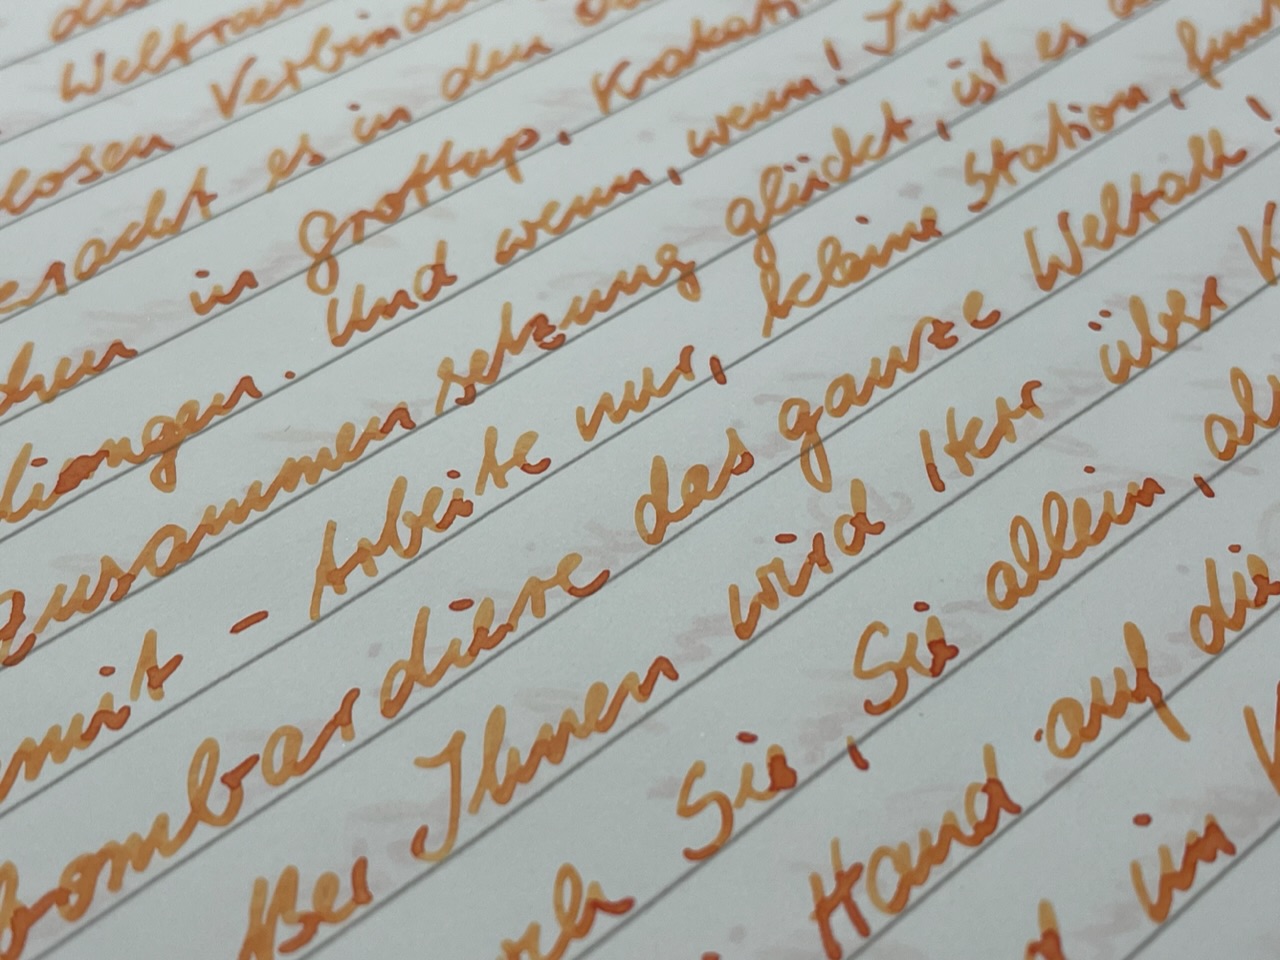 Weltrau
losen Verbind
es in den
in Grottup. Krakati
Und wenn, wenn! Im
Zusammensetzung glückt, ist es
mit - Arbeite nur, kleine Station, funk
bombardiere das ganze Weltall!
ßer Ihnen wird Herr über K
Sie, Sie allein, als
Hand auf die
im